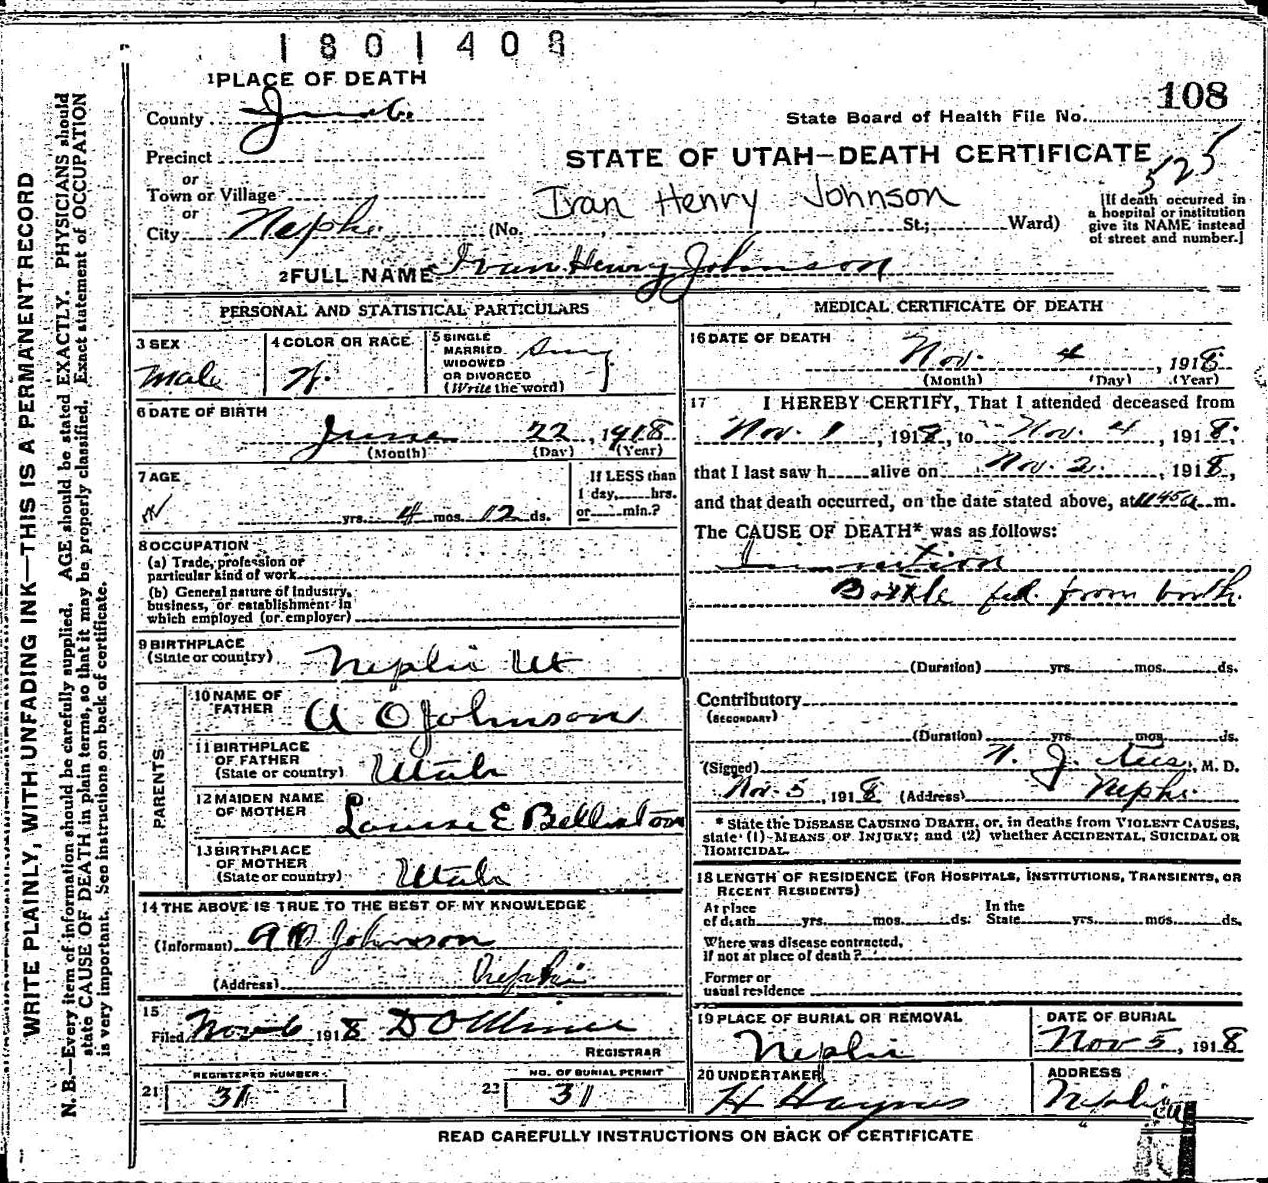 1801408
1 PLACE OF DEATH
108
County Juab.
State Board of Health File No.
Precinct
STATE OF UTAH—DEATH CERTIFICATE
525
or
Town or Village
Ivan Henry Johnson
or
City Nephi (No. St.; Ward)
[If death occurred in
a hospital or institution
give its NAME instead
of street and number.]
2 FULL NAME Ivan Henry Johnson
PERSONAL AND STATISTICAL PARTICULARS
3 SEX
Male
4 COLOR OR RACE
W.
5 SINGLE
MARRIED
WIDOWED
OR DIVORCED
(Write the word)
6 DATE OF BIRTH
June 22, 1918
(Month) (Day) (Year)
7 AGE
yrs. 4 mos. 12 ds.
If LESS than
1 day, hrs.
or min.?
8 OCCUPATION
(a) Trade, profession or
particular kind of work
(b) General nature of Industry,
business, or establishment in
which employed (or employer)
9 BIRTHPLACE
(State or country) Nephi Ut
PARENTS
10 NAME OF
FATHER A O Johnson
11 BIRTHPLACE
OF FATHER
(State or country) Utah
12 MAIDEN NAME
OF MOTHER Louise E Belliston
13 BIRTHPLACE
OF MOTHER
(State or country) Utah
14 THE ABOVE IS TRUE TO THE BEST OF MY KNOWLEDGE
(Informant) A O Johnson
(Address) Nephi
15
Filed Nov 6 1918
REGISTRAR
REGISTERED NUMBER
21 31
NO. OF BURIAL PERMIT
22 31
MEDICAL CERTIFICATE OF DEATH
16 DATE OF DEATH
Nov. 4, 1918
(Month) (Day) (Year)
17 I HEREBY CERTIFY, That I attended deceased from
Nov. 1, 1918, to Nov. 4, 1918,
that I last saw h alive on Nov. 2, 1918,
and that death occurred, on the date stated above, at 1145a m.
The CAUSE OF DEATH* was as follows:
Inanition
Bottle fed from birth.
(Duration) yrs. mos. ds.
Contributory
(SECONDARY)
(Duration) yrs. mos. ds.
(Signed) J. M. D.
Nov. 5, 1918 (Address) Nephi.
* State the DISEASE CAUSING DEATH, or, in deaths from VIOLENT CAUSES,
state (1) MEANS OF INJURY; and (2) whether ACCIDENTAL, SUICIDAL OR
HOMICIDAL.
18 LENGTH OF RESIDENCE (FOR HOSPITALS, INSTITUTIONS, TRANSIENTS, OR
RECENT RESIDENTS)
At place In the
of death yrs. mos. ds. State yrs. mos. ds.
Where was disease contracted,
if not at place of death?
Former or
usual residence
19 PLACE OF BURIAL OR REMOVAL
Nephi
DATE OF BURIAL
Nov 5, 1918
20 UNDERTAKER
H Haynes
ADDRESS
Nephi
READ CAREFULLY INSTRUCTIONS ON BACK OF CERTIFICATE
WRITE PLAINLY, WITH UNFADING INK—THIS IS A PERMANENT RECORD
N. B.—Every item of information should be carefully supplied. AGE should be stated EXACTLY. PHYSICIANS should
state CAUSE OF DEATH in plain terms, so that it may be properly classified. Exact statement of OCCUPATION
is very important. See instructions on back of certificate.